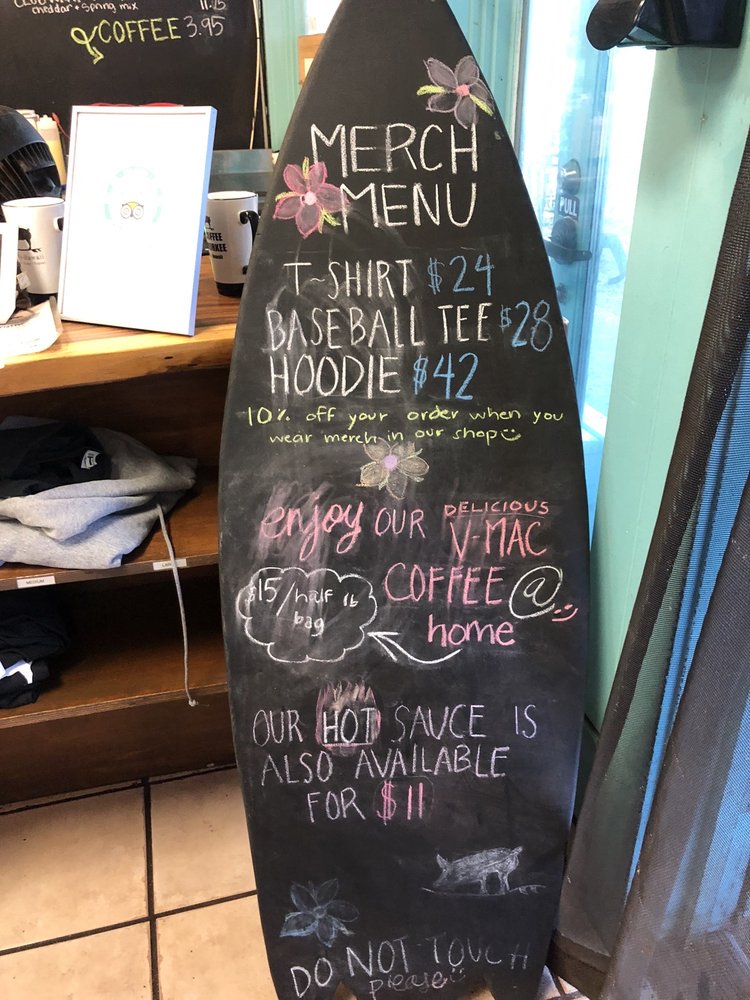 cheddar + spring mix 11.75
COFFEE 3.95
MERCH
MENU
T-SHIRT $24
BASEBALL TEE $28
HOODIE $42
10% off your order when you
wear merch in our shop
enjoy OUR DELICIOUS
V-MAC
COFFEE @
home
$15/half lb
bag
OUR HOT SAUCE IS
ALSO AVAILABLE
FOR $11
DO NOT TOUCH
please
PULL
MEDIUM